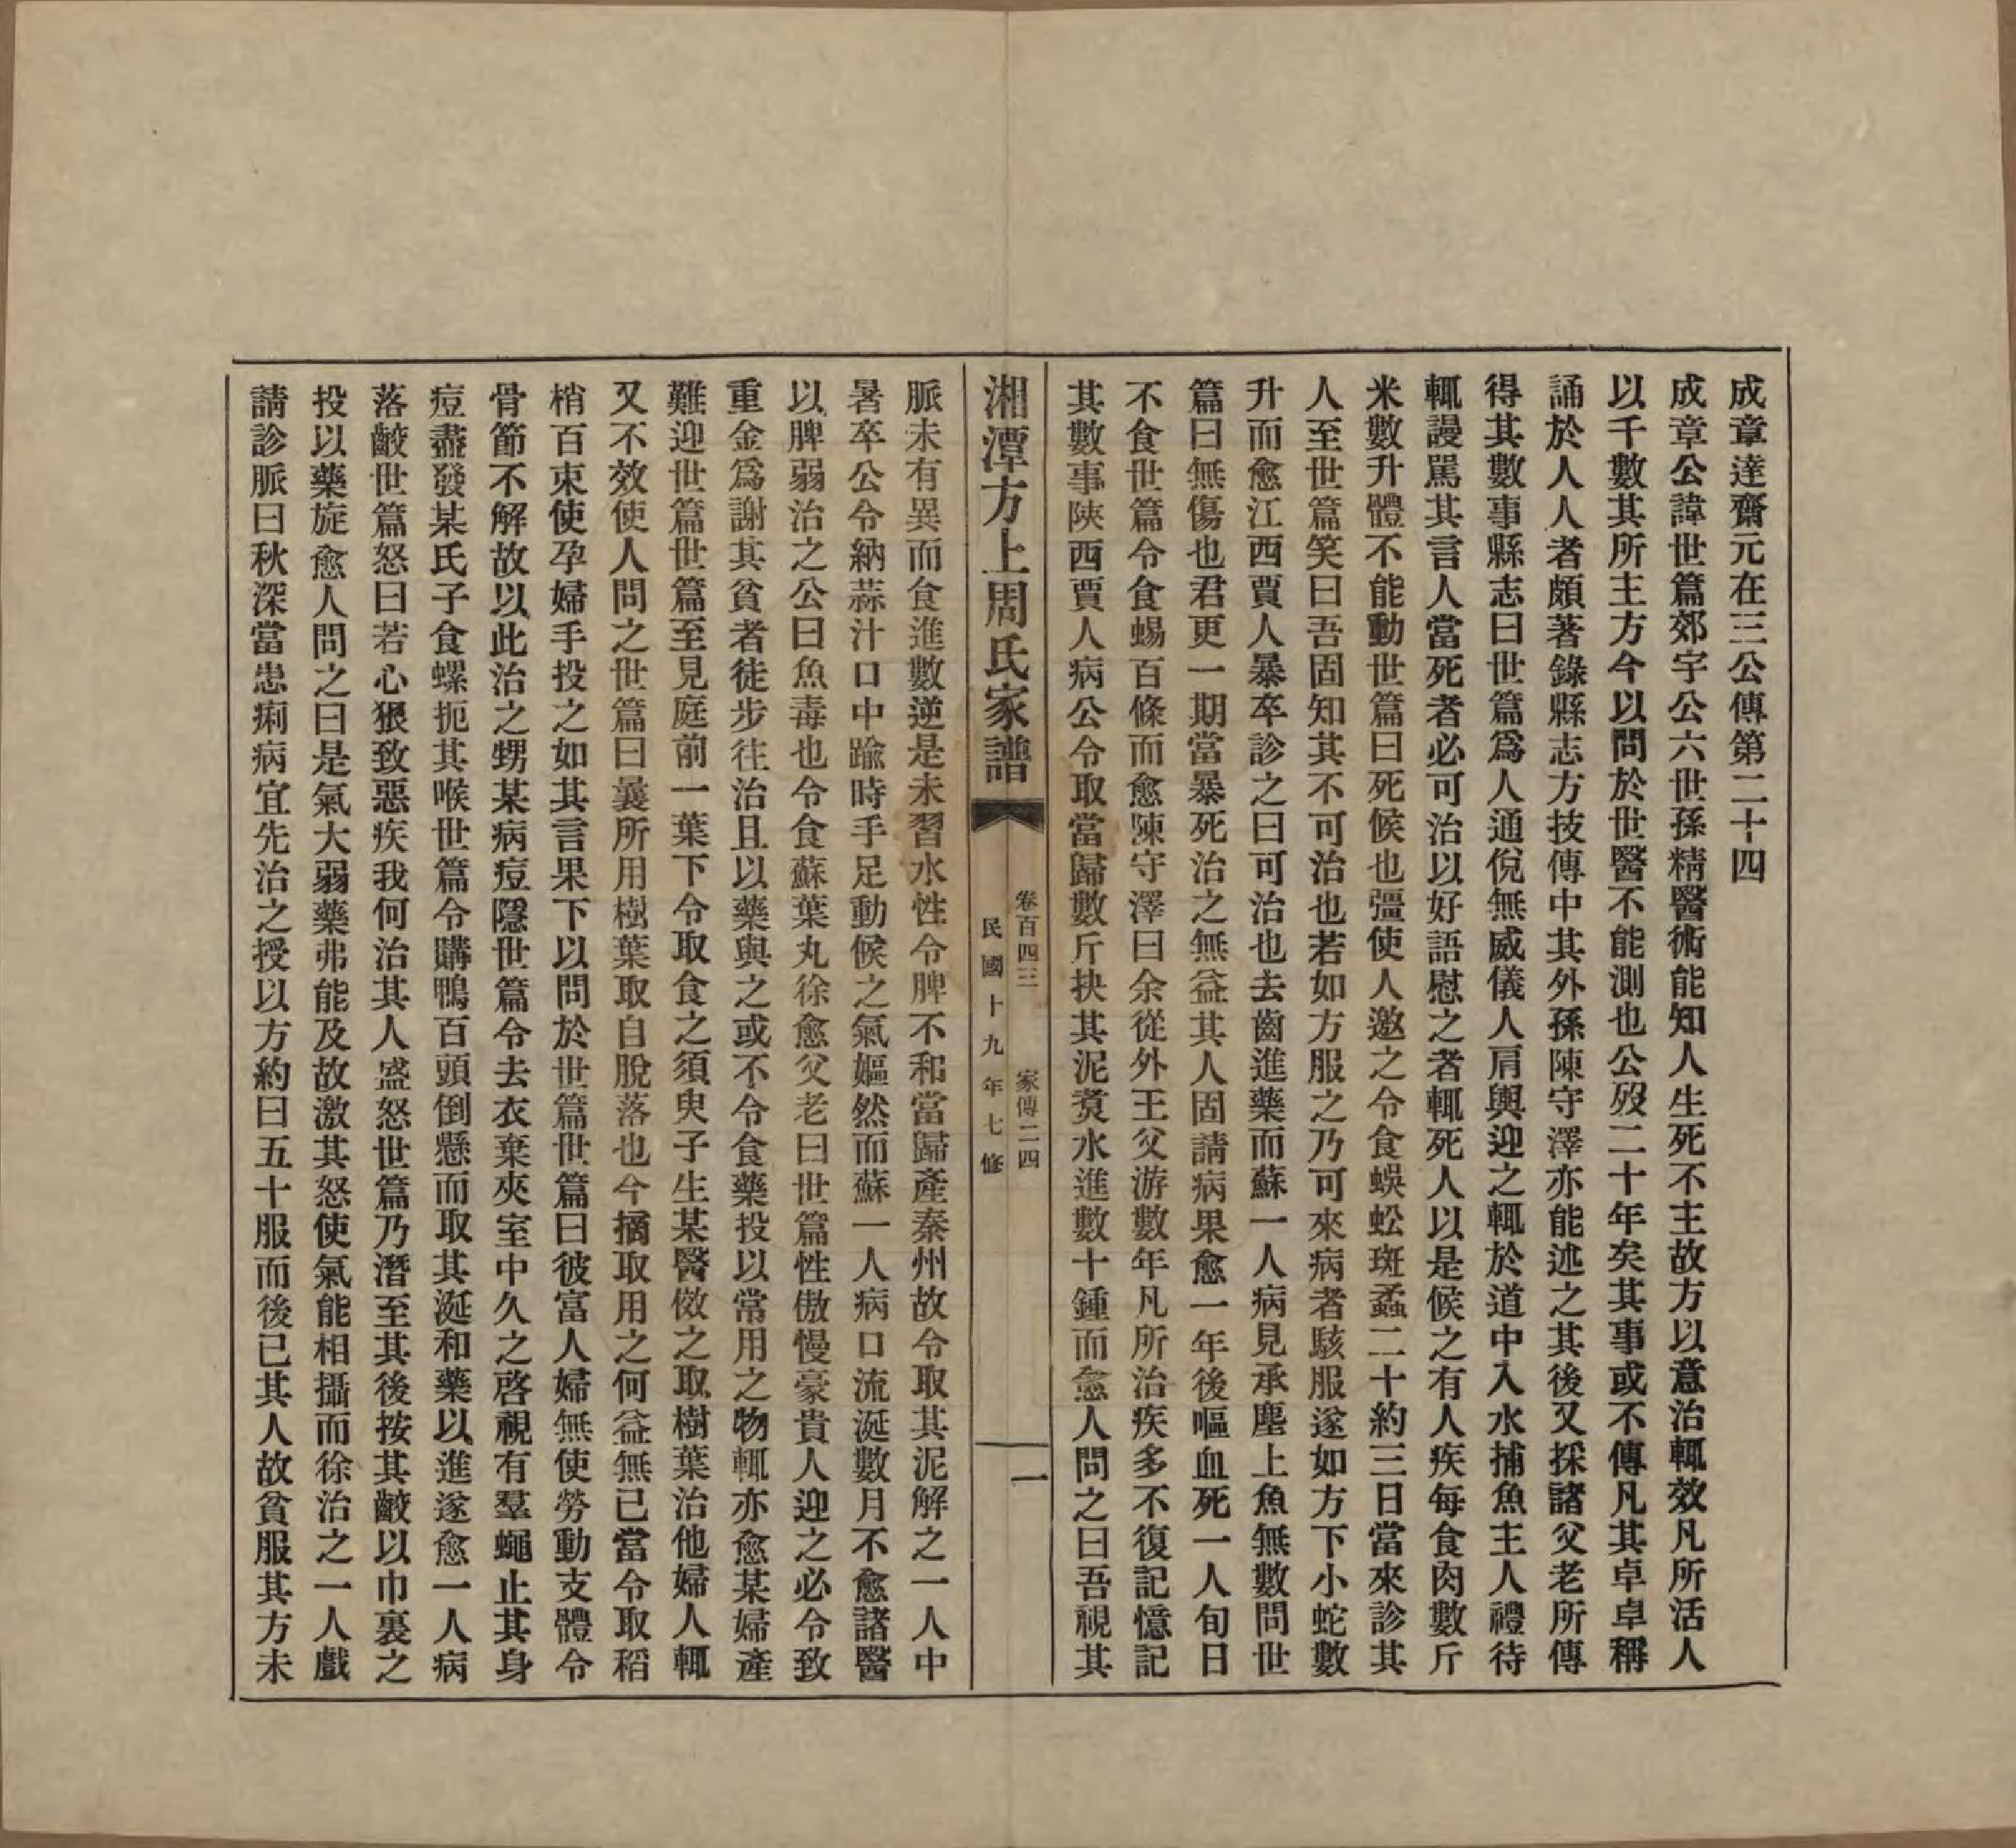 成章達齋元在三公傳第二十四
成章公諱世篇郊宇公六世孫精醫術能知人生死不主故方以意治輒效凡所活人
以千數其所主方今以問於世醫不能測也公歿二十年矣其事或不傳凡其卓卓稱
誦於人人者頗著錄縣志方技傳中其外孫陳守澤亦能述之其後又採諸父老所傳
得其數事縣志曰世篇爲人通侻無威儀人肩輿迎之輒於道中入水捕魚主人禮待
輒謾駡其言人當死者必可治以好語慰之者輒死人以是候之有人疾每食肉數斤
米數升體不能動世篇曰死候也彊使人邀之令食蜈蚣斑蝥二十約三日當來診其
人至世篇笑曰吾固知其不可治也若如方服之乃可來病者駭服遂如方下小蛇數
升而愈江西賈人暴卒診之曰可治也去齒進藥而蘇一人病見承塵上魚無數問世
篇曰無傷也君更一期當暴死治之無益其人固請病果愈一年後嘔血死一人旬日
不食世篇令食蜴百條而愈陳守澤曰余從外王父游數年凡所治疾多不復記憶記
其數事陝西賈人病公令取當歸數斤抉其泥煑水進數十鍾而愈人問之曰吾視其
湘潭方上周氏家譜
卷百四三 家傳二四
民國十九年七修
一
脈未有異而食進數逆是未習水性令脾不和當歸產秦州故令取其泥解之一人中
暑卒公令納蒜汁口中踰時手足動候之氣嫗然而蘇一人病口流涎數月不愈諸醫
以脾弱治之公曰魚毒也令食蘇葉丸徐愈父老曰世篇性傲慢豪貴人迎之必令致
重金爲謝其貧者徒步往治且以藥與之或不令食藥投以常用之物輒亦愈某婦產
難迎世篇世篇至見庭前一葉下令取食之須臾子生某醫傚之取樹葉治他婦人輒
又不效使人問之世篇曰曩所用樹葉取自脫落也今摘取用之何益無已當令取稻
梢百束使孕婦手投之如其言果下以問於世篇世篇曰彼富人婦無使勞動支體令
骨節不解故以此治之甥某病痘隱世篇令去衣棄夾室中久之啓視有羣蠅止其身
痘盡發某氏子食螺扼其喉世篇令購鴨百頭倒懸而取其涎和藥以進遂愈一人病
落骹世篇怒曰若心狠致惡疾我何治其人盛怒世篇乃潛至其後按其骹以巾裏之
投以藥旋愈人問之曰是氣大弱藥弗能及故激其怒使氣能相攝而徐治之一人戲
請診脈曰秋深當患痢病宜先治之授以方約曰五十服而後已其人故貧服其方未